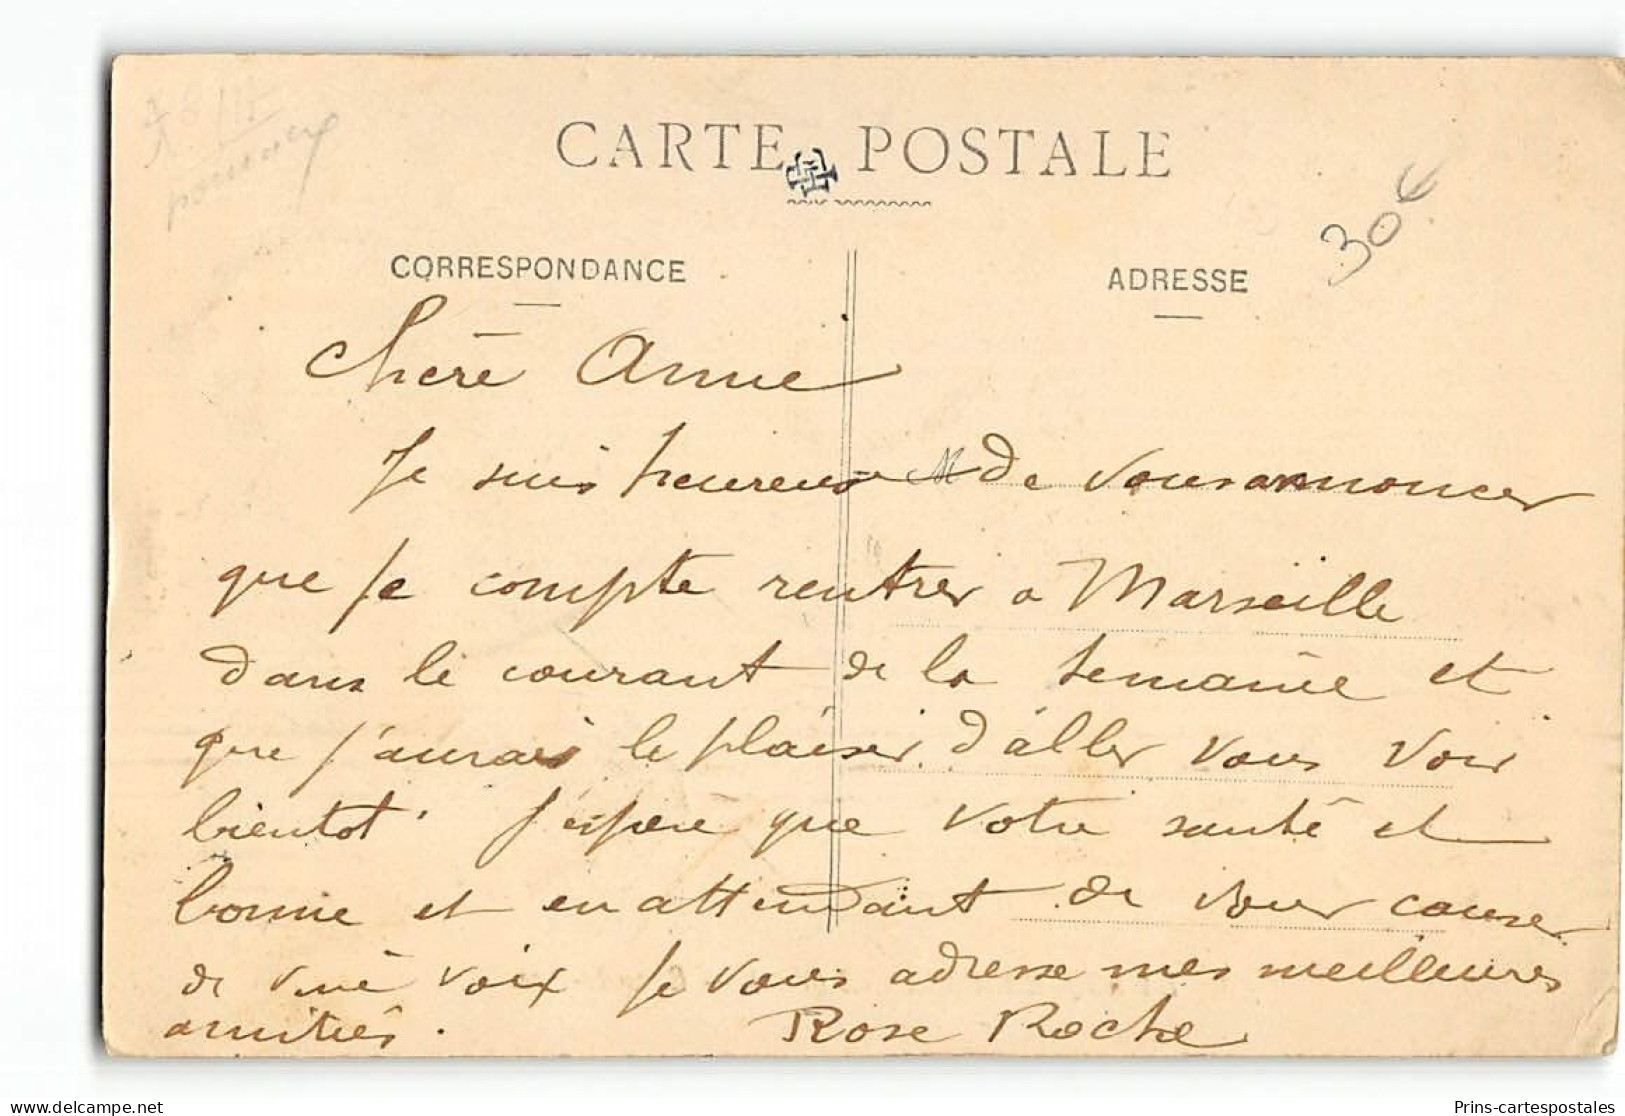 CARTE POSTALE
30€
CORRESPONDANCE
ADRESSE
Chère Annie
Je suis heureuse de vous annoncer
que je compte rentrer a Marseille
dans le courant de la semaine et
que j'aurais le plaisir d'aller vous voir
bientot. J'espère que votre santé et
bonne et en attendant de vous causer
de vive voix je vous adresse mes meilleures
amitiés.
Rose Roche
delcampe.net
Prins-cartespostales